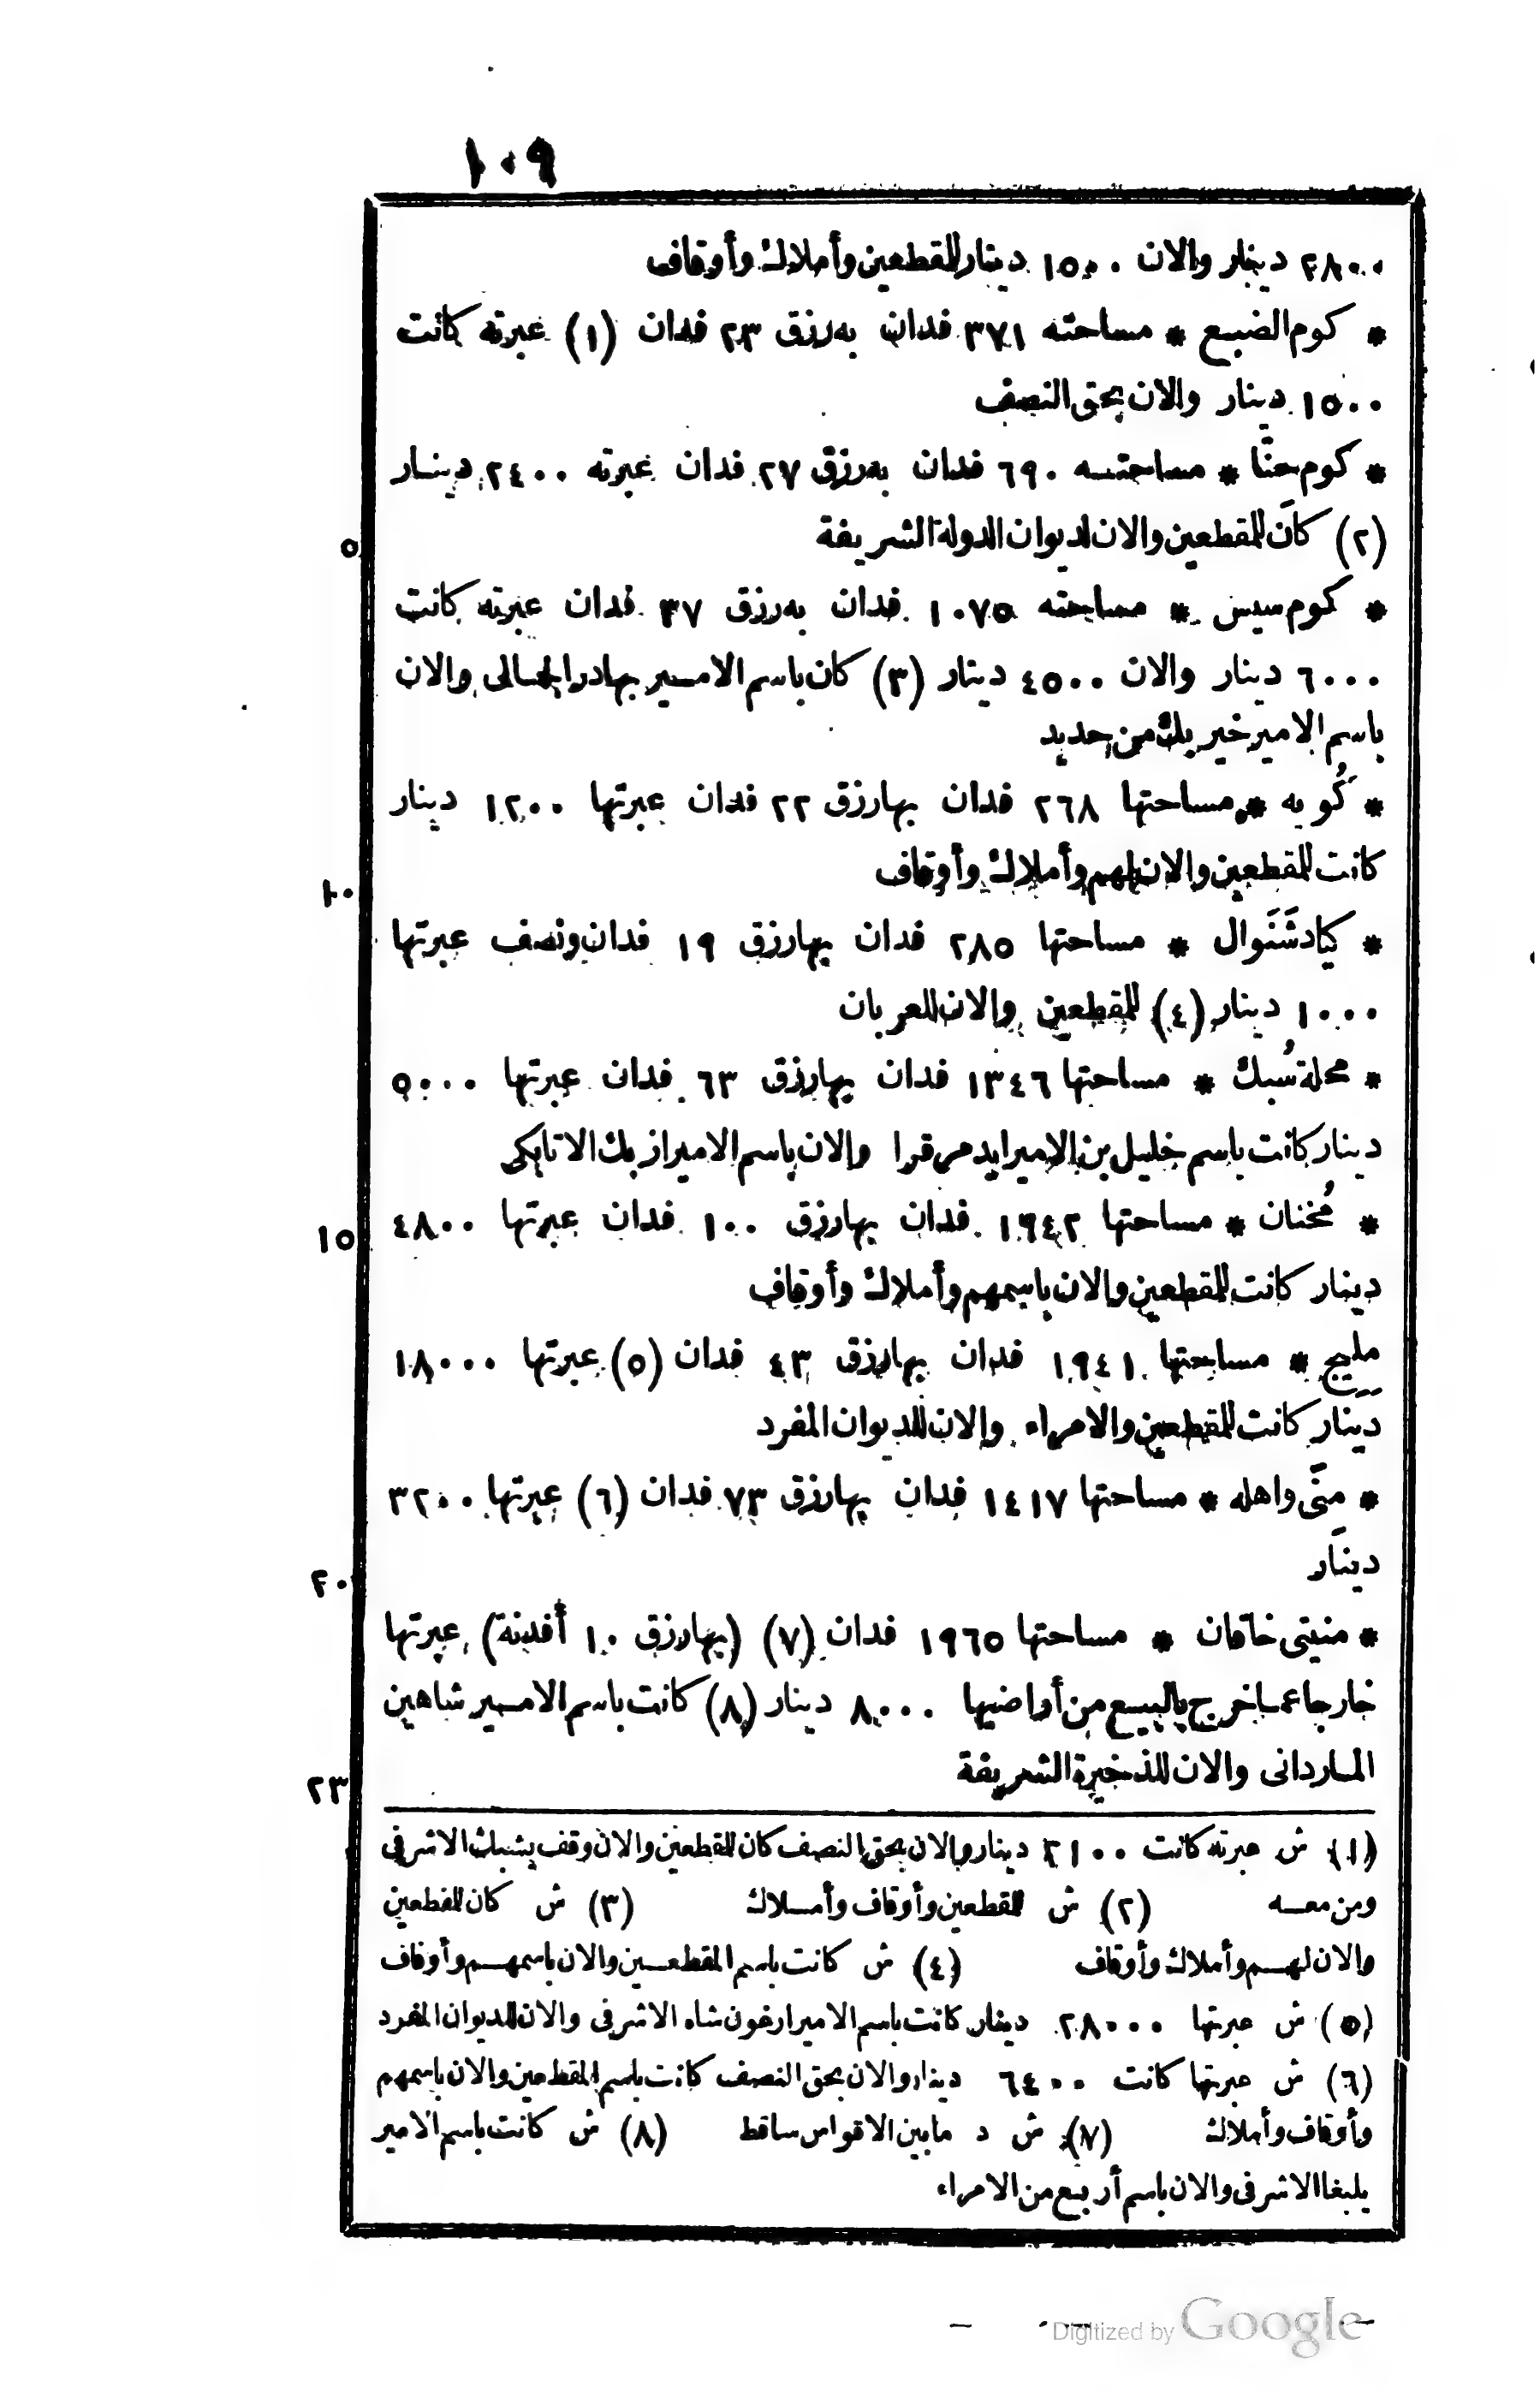 ١٠٩
٢٨٠٠ دينار والان ١٥٠٠ دينار للمقطعين وأملاك وأوقاف
* كوم الضبع * مساحته ٣٧١ فدان به رزق ٢٣ فدان (١) عبرته كانت
١٥٠٠ دينار والان بحق النصف
* كوم حنّا * مساحته ٦٩٠ فدان به رزق ٢٧ فدان عبرته ٢٤٠٠ دينار
(٢) كان للمقطعين والان لديوان الدولة الشريفة
٥
* كوم سيس * مساحته ١٠٧٥ فدان به رزق ٣٧ فدان عبرته كانت
٦٠٠٠ دينار والان ٤٥٠٠ دينار (٣) كان باسم الامير بهادر الجمالى والان
باسم الامير خير بك من حديد
* كُويه * مساحتها ٢٦٨ فدان بها رزق ٢٢ فدان عبرتها ١٢٠٠ دينار
كانت للمقطعين والان لهم وأملاك وأوقاف
١٠
* كيادشَنَوال * مساحتها ٢٨٥ فدان بها رزق ١٩ فدان ونصف عبرتها
١٠٠٠ دينار (٤) للمقطعين والان للعربان
* محلة سُبك * مساحتها ١٣٤٦ فدان بها رزق ٦٣ فدان عبرتها ٥٠٠٠
دينار كانت باسم خليل بن الامير ايدمر قرا والان باسم الامير ازبك الاتابكى
* مُخنان * مساحتها ١٩٤٢ فدان بها رزق ١٠٠ فدان عبرتها ٤٨٠٠
١٥
دينار كانت للمقطعين والان باسمهم وأملاك وأوقاف
مليج * مساحتها ١٩٤١ فدان بها رزق ٤٣ فدان (٥) عبرتها ١٨٠٠٠
دينار كانت للمقطعين والامراء والان للديوان المفرد
* منّى واهله * مساحتها ١٤١٧ فدان بها رزق ٧٣ فدان (٦) عبرتها ٣٢٠٠
دينار
٢٠
* منيتى خاقان * مساحتها ١٩٦٥ فدان (٧) (بها رزق ١٠ أفدنة) عبرتها
خارجا عما خرج بالبيع من أراضيها ٨٠٠٠ دينار (٨) كانت باسم الامير شاهين
الماردانى والان للذخيرة الشريفة
٢٣
(١) ش عبرته كانت ٢١٠٠ دينار والان بحق النصف كان للمقطعين والان وقف يشبك الاشرفى
ومن معه (٢) ش للمقطعين وأوقاف وأملاك (٣) ش كان للمقطعين
والان لهم وأملاك وأوقاف (٤) ش كانت باسم المقطعين والان باسمهم وأوقاف
(٥) ش عبرتها ٢٨٠٠٠ دينار كانت باسم الامير ارغون شاه الاشرفى والان للديوان المفرد
(٦) ش عبرتها كانت ٦٤٠٠ دينار والان بحق النصف كانت باسم المقطعين والان باسمهم
وأوقاف وأملاك (٧) ش د ما بين الاقواس ساقط (٨) ش كانت باسم الامير
يلبغا الاشرفى والان باسم أربع من الامراء
Digitized by Google